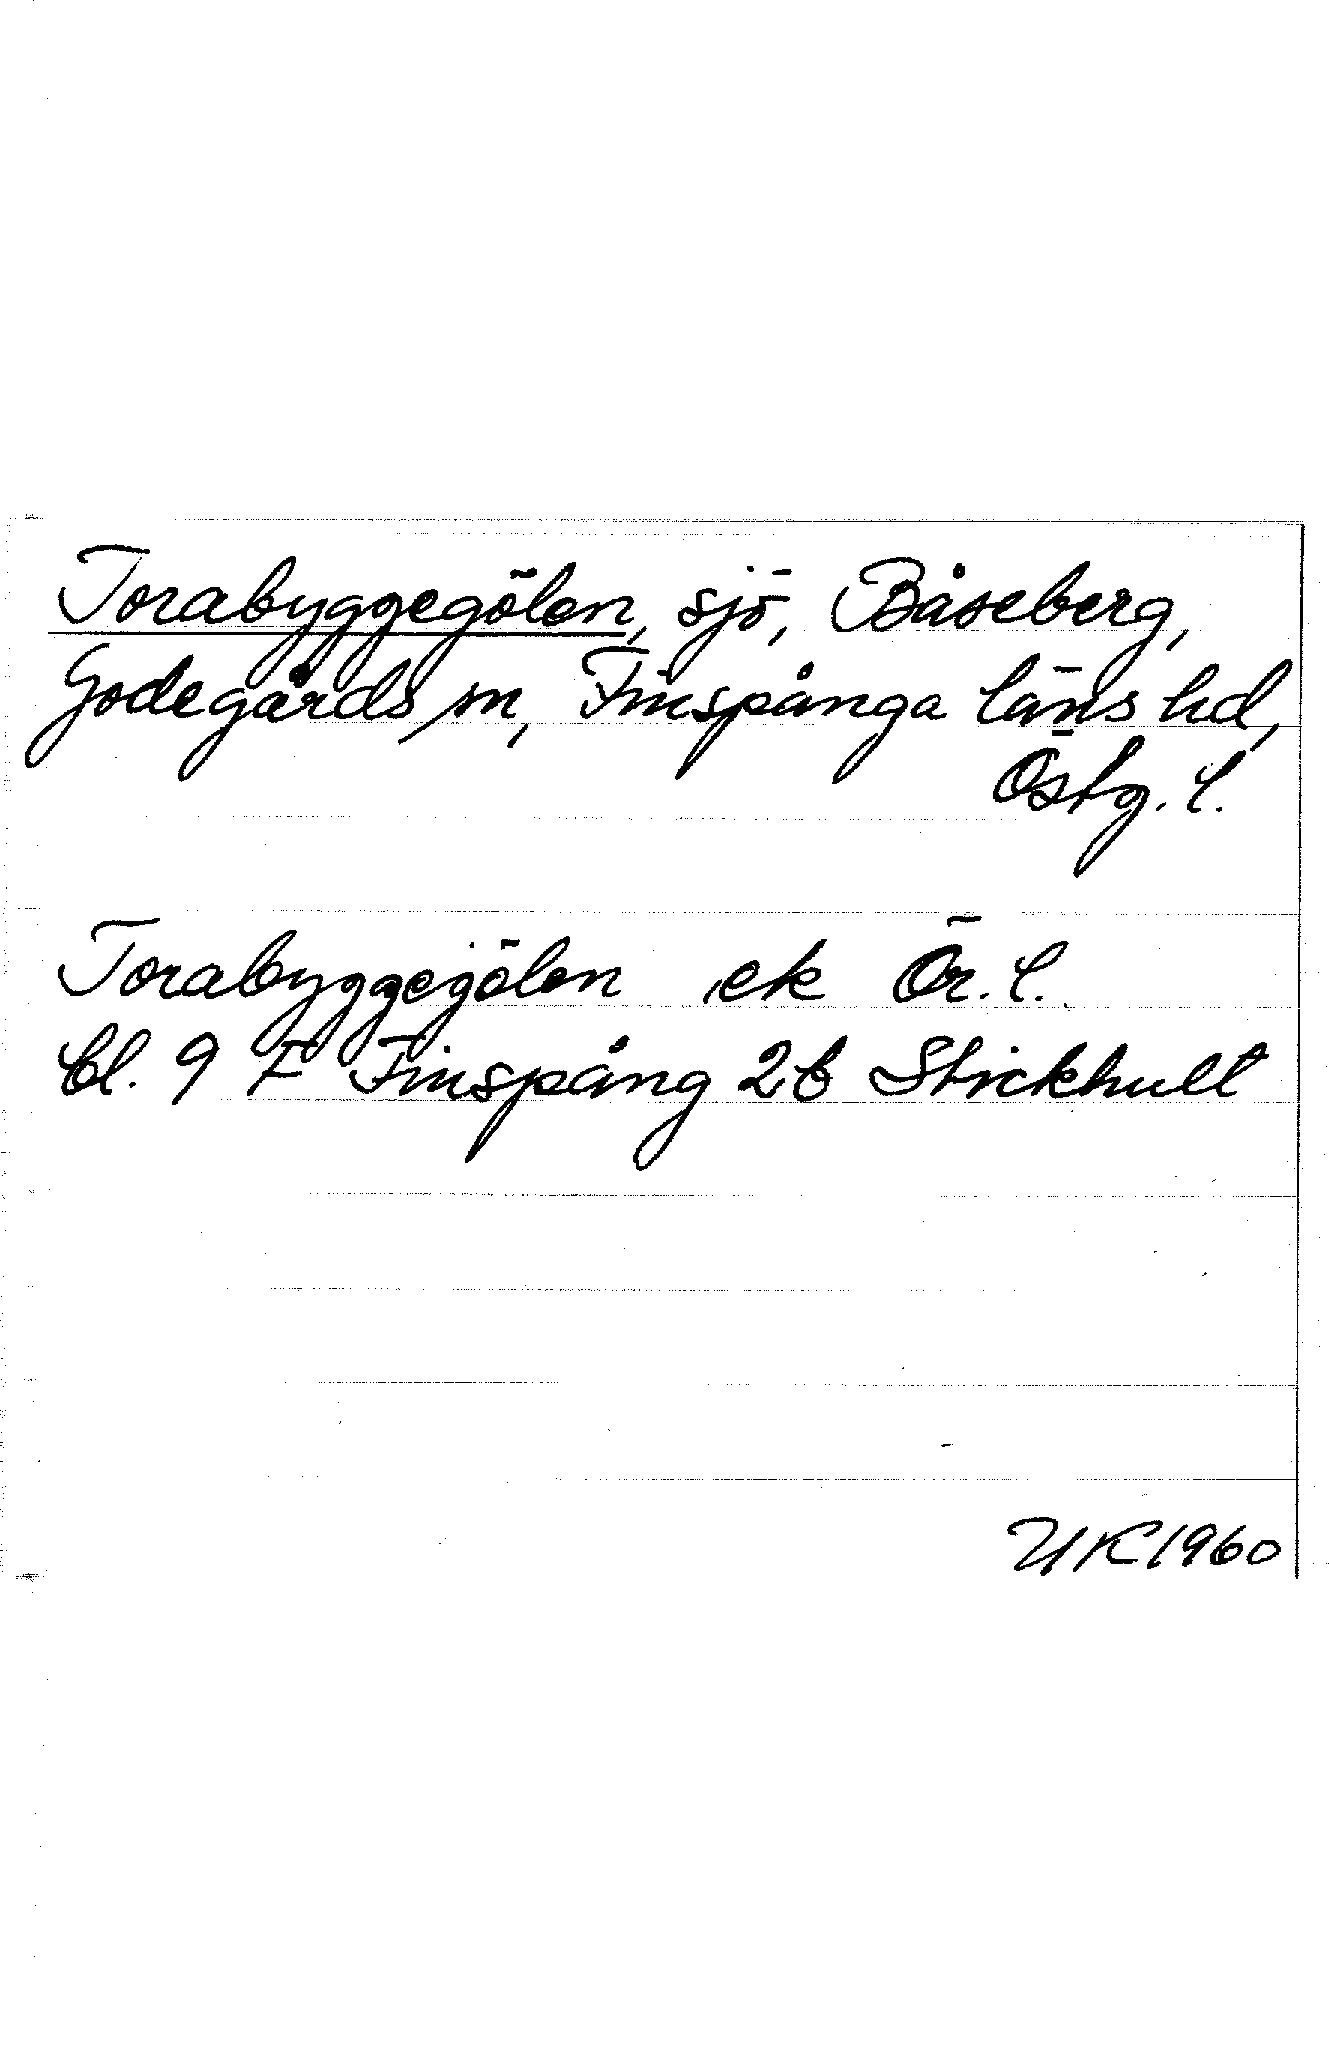 Torabyggegölen, sjö, Båseberg,
Godegårds sn, Finspånga läns hd,
Östg. l.
Torabyggejölen ek Ör. l.
bl. 9 F Finspång 2b Stickhult
UK 1960